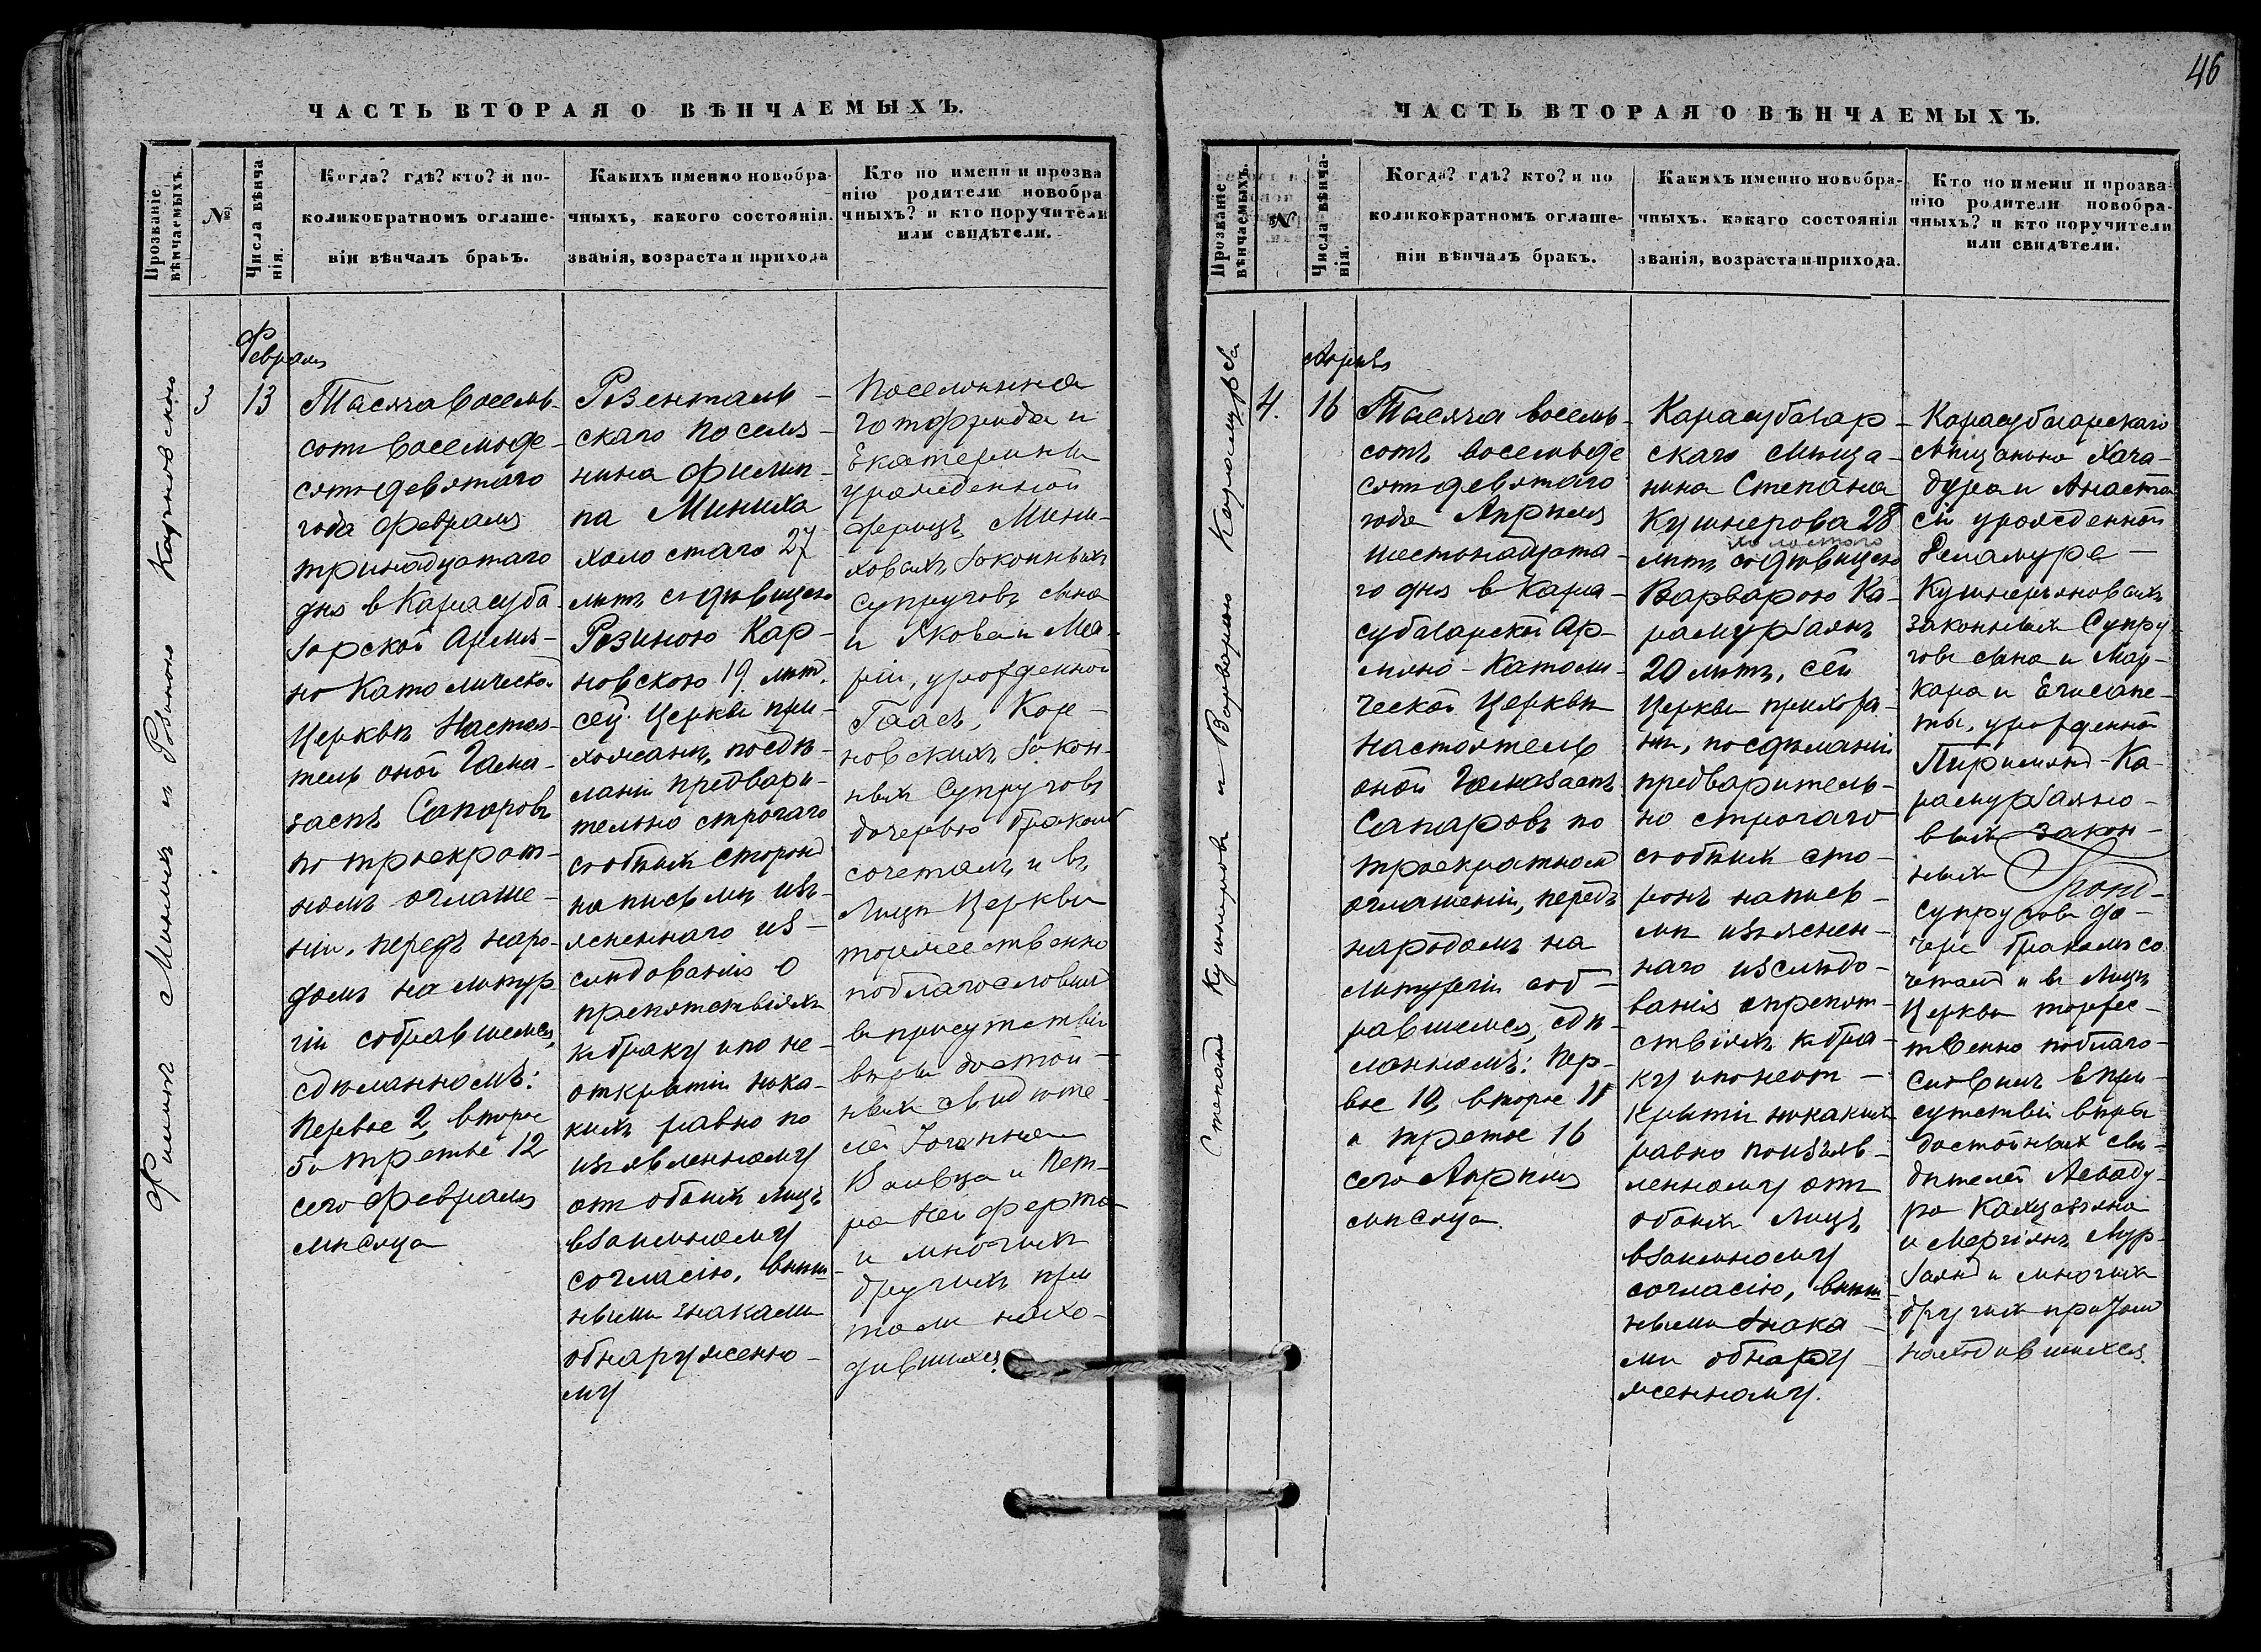 ЧАСТЬ ВТОРАЯ О ВѢНЧАЕМЫХЪ.
Прозваніе вѣнчаемыхъ.
№
Числа вѣнча нія.
Когда? гдѣ? кто? и по-
коликократномъ оглаше-
ніи вѣнчалъ бракъ.
Какихъ именно новобра-
чныхъ, какого состоянія.
званія, возраста и прихода
Кто по имени и прозва
нію родители новобра
чныхъ? и кто поручители
или свидѣтели.
Филипъ Минихъ и Розиною Карновскою
3
Февраля
13
Тысяча восемь-
сотъ восемьде-
сятъ девятаго
года февраля
тринадцатаго
дня в Карасуба-
зарской Армя-
но Католической
Церквѣ Настоя-
тель оной Гама-
заспъ Сапаровъ
по троекрат-
номъ оглаше-
ніи, передъ наро-
домъ на литур
гіи собравшемся,
сдѣланномъ:
Первое 2, второе
5 и третье 12
сего февраля
мѣсяца
Розенталь-
скаго поселя-
нина Филип-
па Миниха
холостаго 27
лѣтъ съ дѣвицею
Розиною Кар-
новскою 19 лѣтъ.
сей Церкви при-
хожанъ, по сдѣ-
ланіи предвари-
тельно строгаго
съ обѣихъ сторонъ
на письмѣ изъ-
ясненнаго из-
слѣдованія о
препятствіяхъ
къ браку и по не-
открытіи ника-
кихъ равно по
изъявленному
отъ обоихъ лицъ
взаимному
согласію, внѣш-
ными знаками
обнаруженно-
му
Поселянина
Готфрида и
Екатерины
урожденной
Ферицъ Мини-
ховыхъ законныхъ
супруговъ сына
и Якова и Ма-
ріи, урожденной
Гаасъ, Кар-
новскихъ закон-
ныхъ супруговъ
дочерью бракомъ
сочеталъ и въ
Лицѣ Церкви
торжественно
поблагословилъ
в присутствіи
вѣры достой-
ныхъ свидѣте-
лей Іоганна
и Пет-
ра
и многихъ
другихъ при
томъ нахо-
дившихся.
46
ЧАСТЬ ВТОРАЯ О ВѢНЧАЕМЫХЪ.
Прозваніе вѣнчаемыхъ.
№
Числа вѣнча- нія.
Когда? гдѣ? кто? и по
коликократномъ оглаше-
ніи вѣнчалъ бракъ.
Какихъ именно новобра-
чныхъ. какаго состоянія
званія, возраста и прихода.
Кто по имени и прозва-
нію родители новобра-
чныхъ? и кто поручители
или свидѣтели.
Степанъ Кушнеровъ и Варварою Карамурза
4.
Апрѣль
16
Тысяча восемь-
сотъ восемьде
сятъ девятаго
года Апрѣля
шестонадцата-
го дня в Кара-
субазарской Ар-
мяно-Католи-
ческой Церкви
Настоятель
оной Гамазаспъ
Сапаровъ по
троекратномъ
оглашеніи, передъ
народомъ на
литургіи соб-
равшемся, сдѣ-
ланномъ: пер-
вое 10, второе 15
и третое 16
сего Апрѣля
мѣсяца.
Карасубазар-
скаго Мѣща-
нина Степана
Кушнерова 28
холостого
лѣтъ съ дѣвицею
Варварою Ка-
рамурзаянъ
20 лѣтъ, сей
Церкви прихожа-
нъ, по сдѣланіи
предваритель-
но строгаго
съ обѣихъ сто-
ронъ на пись-
мѣ изъяснен-
наго изслѣдо-
ванія о препят-
ствіяхъ къ бра-
ку и по неот-
крытіи никакихъ
равно по изъяв-
ленному отъ
обоихъ лицъ
взаимному
согласію, внѣш-
ными знака-
ми обнару-
женному.
Карасубазарскаго
Мѣщанина Хача-
дура и Анаста-
сіи урожденной
Кушнеръяновыхъ
законныхъ Супру-
говъ сына и Мар-
кара и Елисаве-
ты, урожденной
Ка-
рамурзаяно-
выхъ закон-
ныхъ
супруговъ до-
черь бракомъ со
четалъ и въ Лицѣ
Церкви торжес-
твенно поблаго-
словилъ в при-
сутствіи вѣры
достойныхъ сви-
дѣтелей Асваду-
ра
и Мур-
заянъ и многихъ
другихъ при томъ
находившихся.